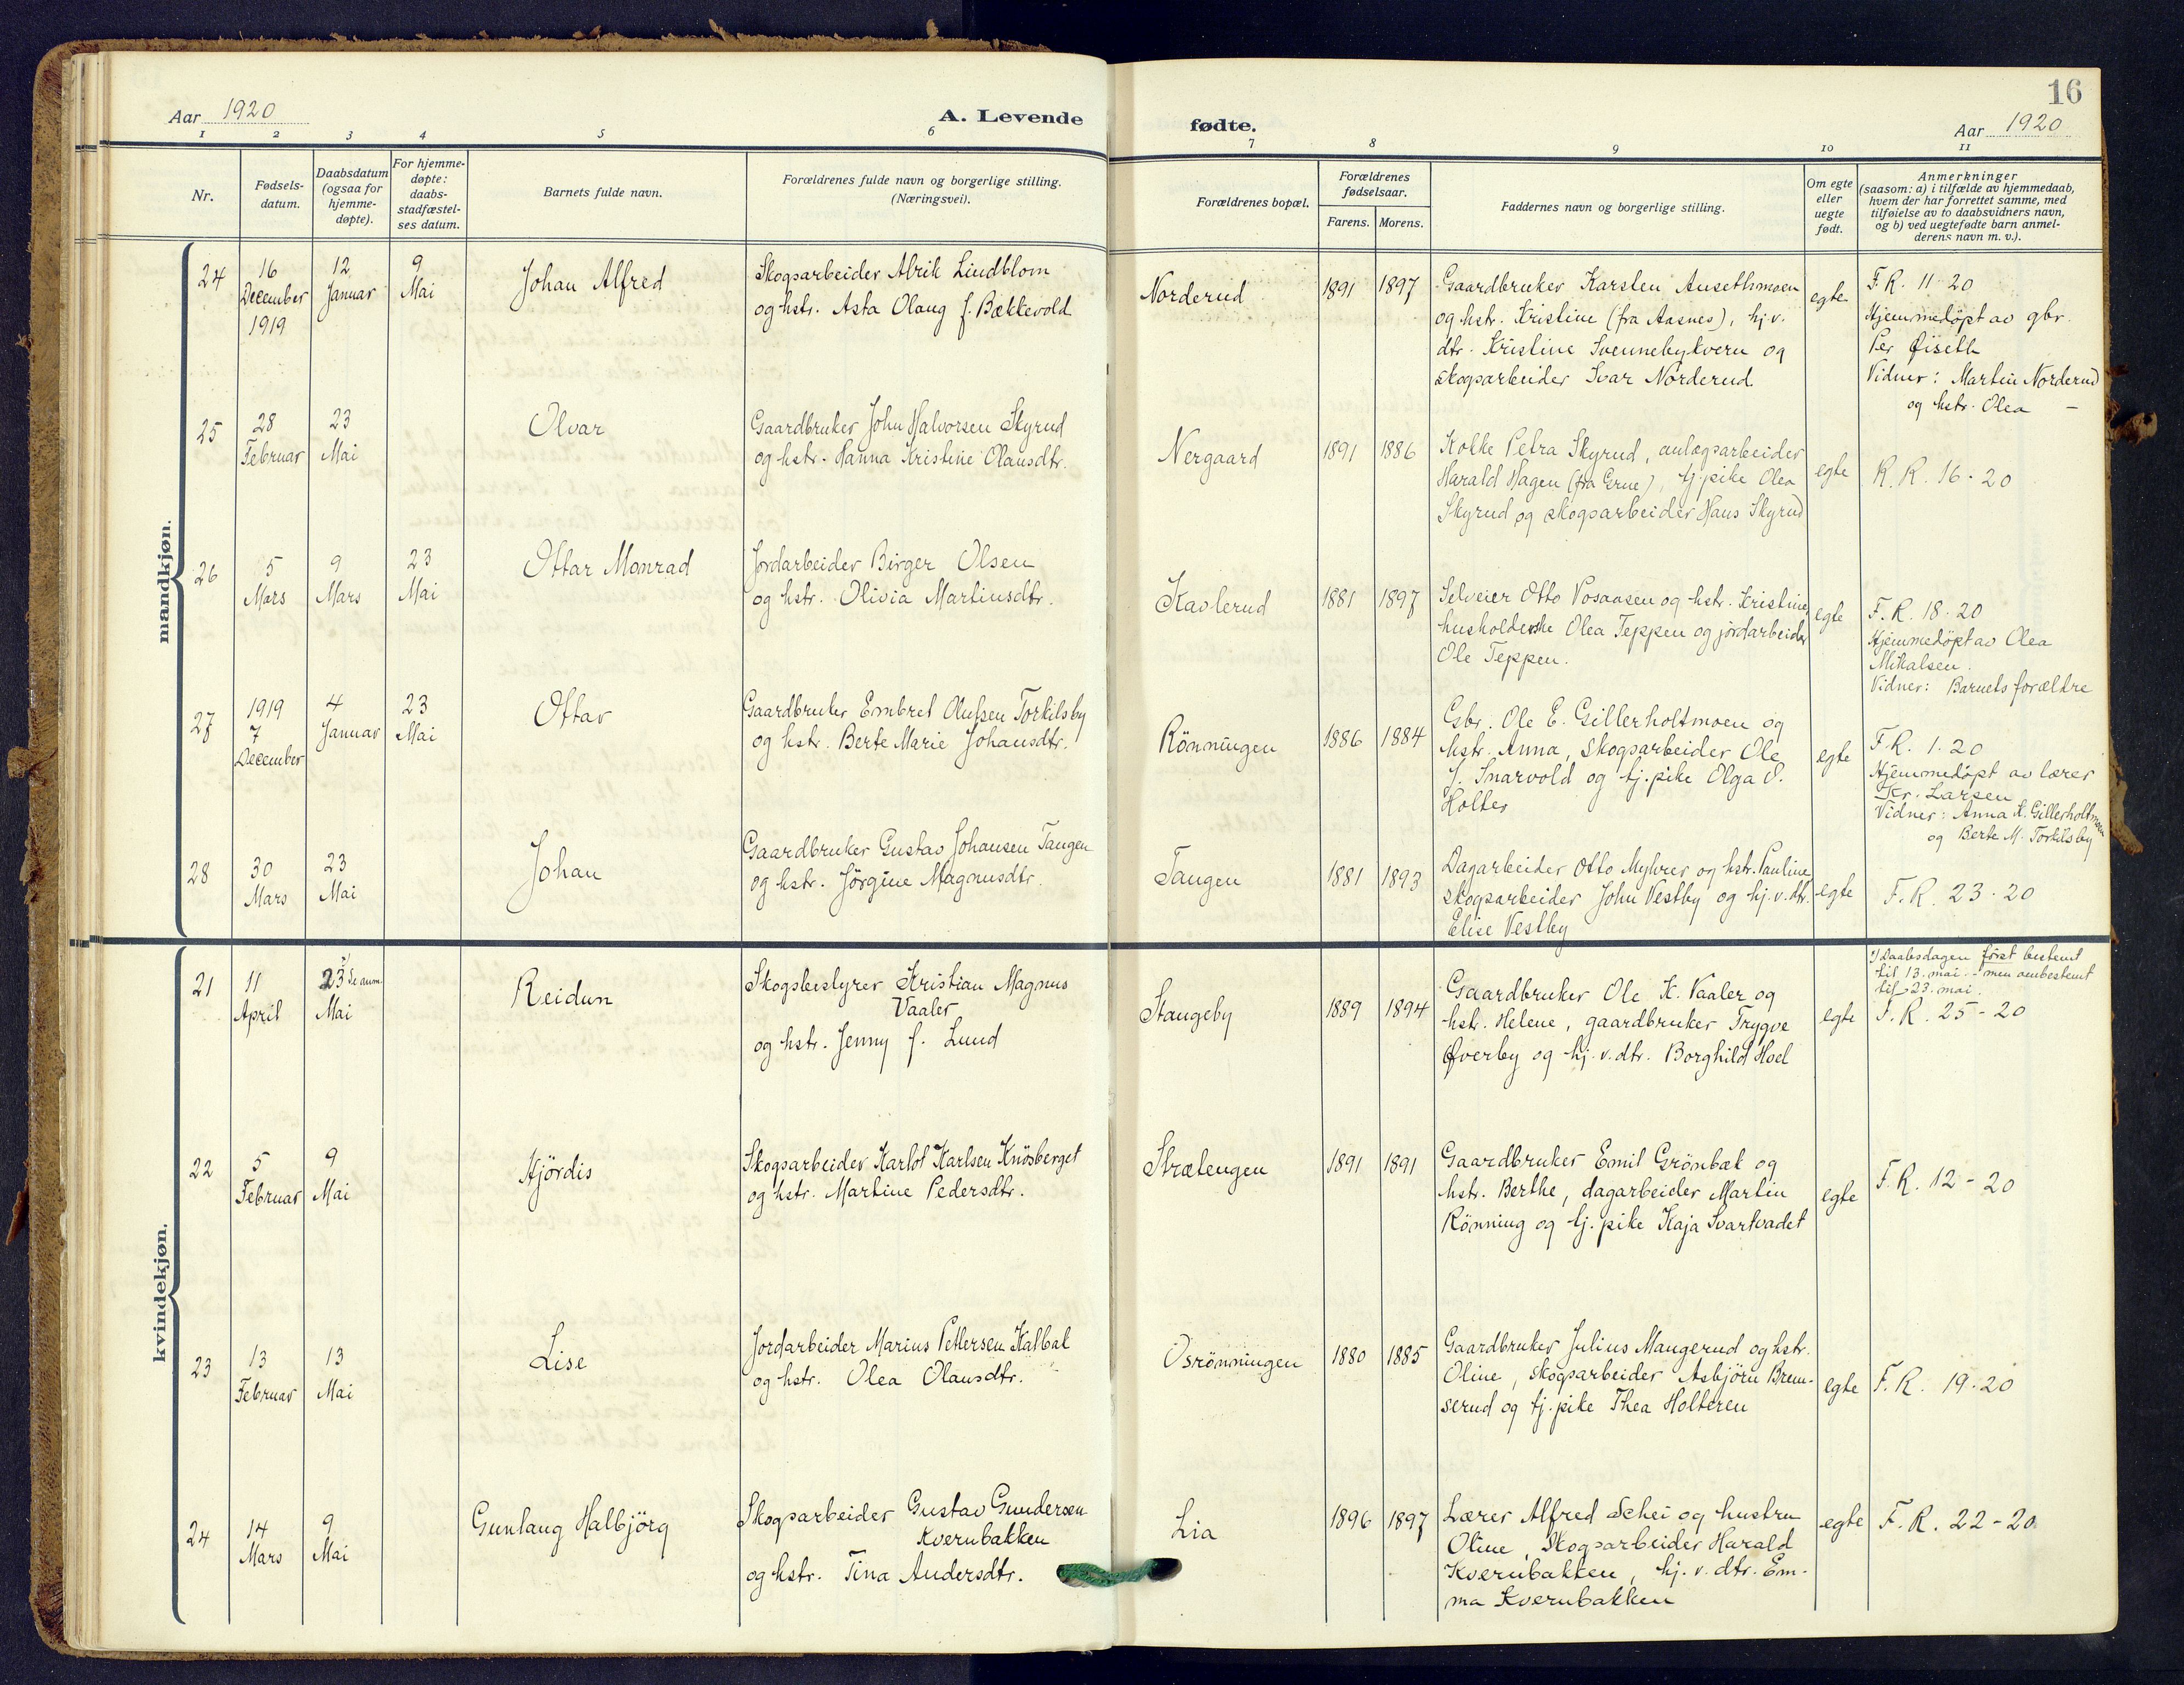 Aar 1920
A. Levende
1 2 3 4 5 6
Nr.
Fødsels-
datum.
Daabsdatum
(ogsaa for
hjemme-
døpte).
For hjemme-
døpte:
daabs-
stadfæstel-
ses datum.
Barnets fulde navn.
Forældrenes fulde navn og borgerlige stilling.
(Næringsvei).
mandkjøn.
24
16
December
1919
12
Januar
9
Mai
Johan Alfred
Skogsarbeider Alrik Lindblom
og hstr. Asta Olaug f. Bækkevold
25
28
Februar
23
Mai
Olvar
Gaardbruker John Halvorsen Skyrud
og hstr. Hanna Kristine Olausdtr.
26
5
Mars
9
Mars
23
Mai
Ottar Monrad
Jordarbeider Birger Olsen
og hstr. Olivia Martinsdtr.
27
1919
7
December
4
Januar
23
Mai
Ottar
Gaardbruker Embret Olufsen Torkilsby
og hstr. Berte Marie Johansdtr.
28
30
Mars
23
Mai
Johan
Gaardbruker Gustav Johansen Tangen
og hstr. Jörgine Magnusdtr.
kvindekjøn.
21
11
April
23 Se anm.
Mai
Reidun
Skogsbestyrer Kristian Magnus
Vaaler
og hstr. Jenny f. Lund
22
5
Februar
9
Mai
Hjördis
Skogsarbeider Karlot Karlsen Knösberget
og hstr. Martine Pedersdtr.
23
13
Februar
13
Mai
Lise
Jordarbeider Marius Pettersen Kalbak
og hstr. Olea Olausdtr.
24
14
Mars
9
Mai
Gunlaug Halbjörg
Skogsarbeider Gustav Gundersen
Kvernbakken
og hstr. Tina Andersdtr.
16
fødte.
Aar 1920
7 8 9 10 11
Forældrenes bopæl.
Forældrenes
fødselsaar.
Farens. Morens.
Faddernes navn og borgerlige stilling.
Om egte
eller
uegte
født.
Anmerkninger
(saasom: a) i tilfælde av hjemmedaab,
hvem der har forrettet samme, med
tilføielse av to daabsvidners navn,
og b) ved uegtefødte barn anmel-
derens navn m. v.).
Norderud
1891 1897
Gaardbruker Karsten Ausethmoen
og hstr. Kristine (fra Aasnes), hj.v.
dtr. Kristine Svennebykvern og
skogsarbeider Ivar Norderud
egte
F.R. 11-20
Hjemmedöpt av gbr.
Per Öiseth
Vidner: Martin Norderud
og hstr. Olea —
Nergaard
1891 1886
Kokke Petra Skyrud, anlægsarbeider
Harald Hagen (fra Grue), tj.pike Olea
Skyrud og skogsarbeider Hans Skyrud
egte
R.R. 16-20
Kavlerud
1881 1897
Selveier Otto Vosaasen og hstr. Kristine
husholderske Olea Teppen og jordarbeider
Ole Teppen.
egte
F.R. 18-20
Hjemmedöpt av Olea
Mikalsen.
Vidner: Barnets forældre
Rönningen
1886 1884
Gbr. Ole E. Gillerholtmoen og
hstr. Anna, skogsarbeider Ole
J. Snarvold og tj.pike Olga O.
Holter
egte
F.R. 1-20
Hjemmedöpt av lærer
Kr. Larsen
Vidner: Anna K. Gillerholtmoen
og Berte M. Torkilsby
Tangen
1881 1893
Dagarbeider Otto Myhrer og hstr. Pauline
skogsarbeider John Vestby og hj.v.dtr.
Elise Vestby
egte
F.R. 23-20
Stangeby
1889 1894
Gaardbruker Ole K. Vaaler og
hstr. Helene, gaardbruker Trygve
Överby og hj.v.dtr. Borghild Hoel
egte
1) Daabsdagen först bestemt
til 13. mai - men ombestemt
til 23. mai.
F.R. 25-20
Strætengen
1891 1891
Gaardbruker Emil Grönbæk og
hstr. Berthe, dagarbeider Martin
Rönning og tj.pike Kaja Svartvadet
egte
F.R. 12-20
Osrönningen
1880 1885
Gaardbruker Julius Maugerud og hstr.
Oline, skogsarbeider Asbjörn Brem-
serud og tj.pike Thea Holteren
egte
F.R. 19-20
Lia
1896 1897
Lærer Alfred Schei og hustru
Oline, Skogsarbeider Harald
Kvernbakken, hj.v.dtr. Em-
ma Kvernbakken
egte
F.R. 22-20